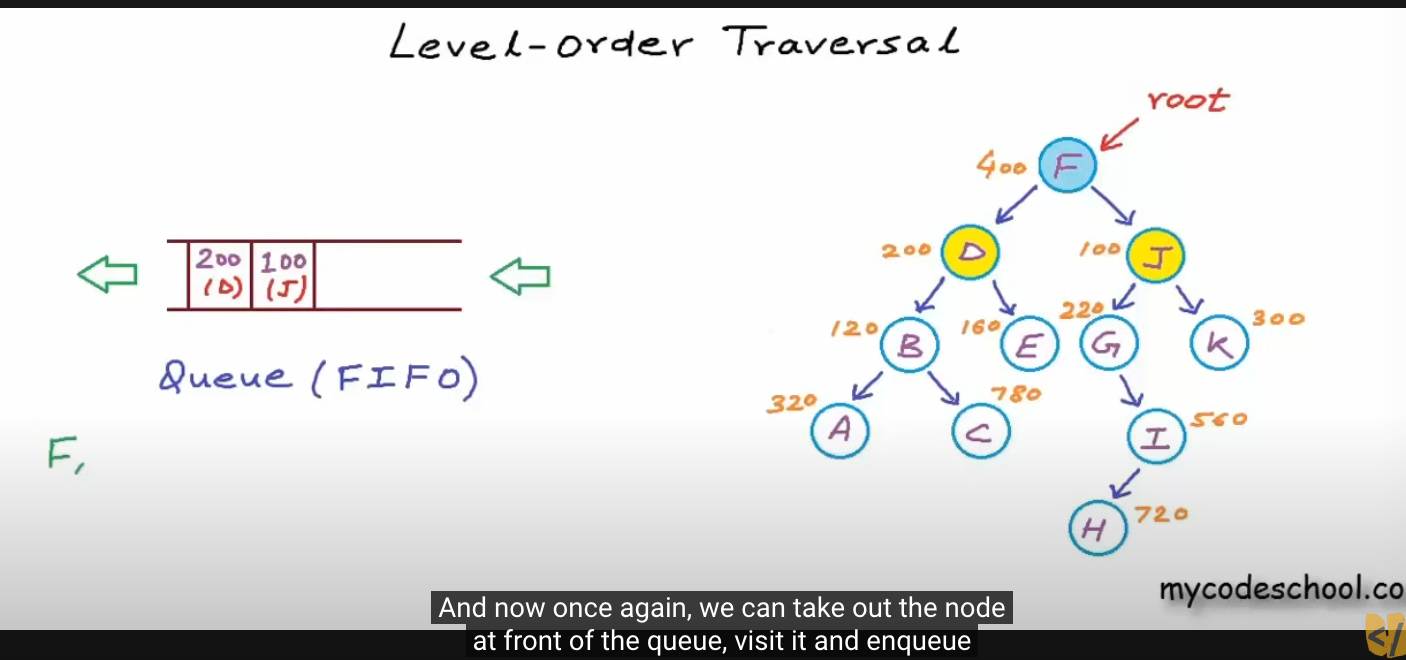 Level-order Traversal
root
400 F
200 D 100 J
200 100
(D) (J)
120 B 160 E 220 G K 300
Queue (FIFO)
320 A C 780 I 560
F,
H 720
mycodeschool.co
And now once again, we can take out the node
at front of the queue, visit it and enqueue